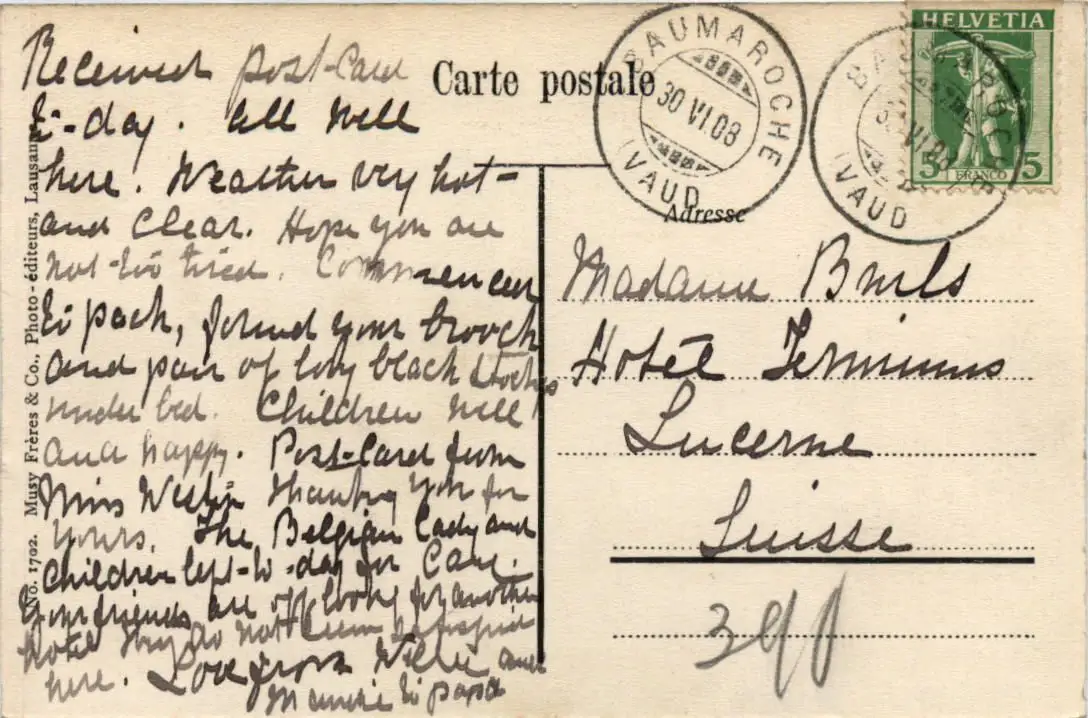 Received post-card
to-day. All well
here. Weather very hot
and clear. Hope you are
not too tired. Commenced
to pack, found your brooch
and pair of long black stockings
under bed. Children well
and happy. Post-card from
Miss thanking you for
yours. The Belgian lady and
children left to-day for
Your friends are off looking for another
hotel they do not seem satisfied
here. Love from Willie and
to papa
No. 1702. Musy Frères & Co., Photo-éditeurs, Lausanne
Carte postale
BAUMAROCHE
30 VI.08
(VAUD)
BAUMAROCHE
30 VI.08
(VAUD)
HELVETIA
5 5
FRANCO
Adresse
Madame
Hotel Terminus
Lucerne
Suisse
390